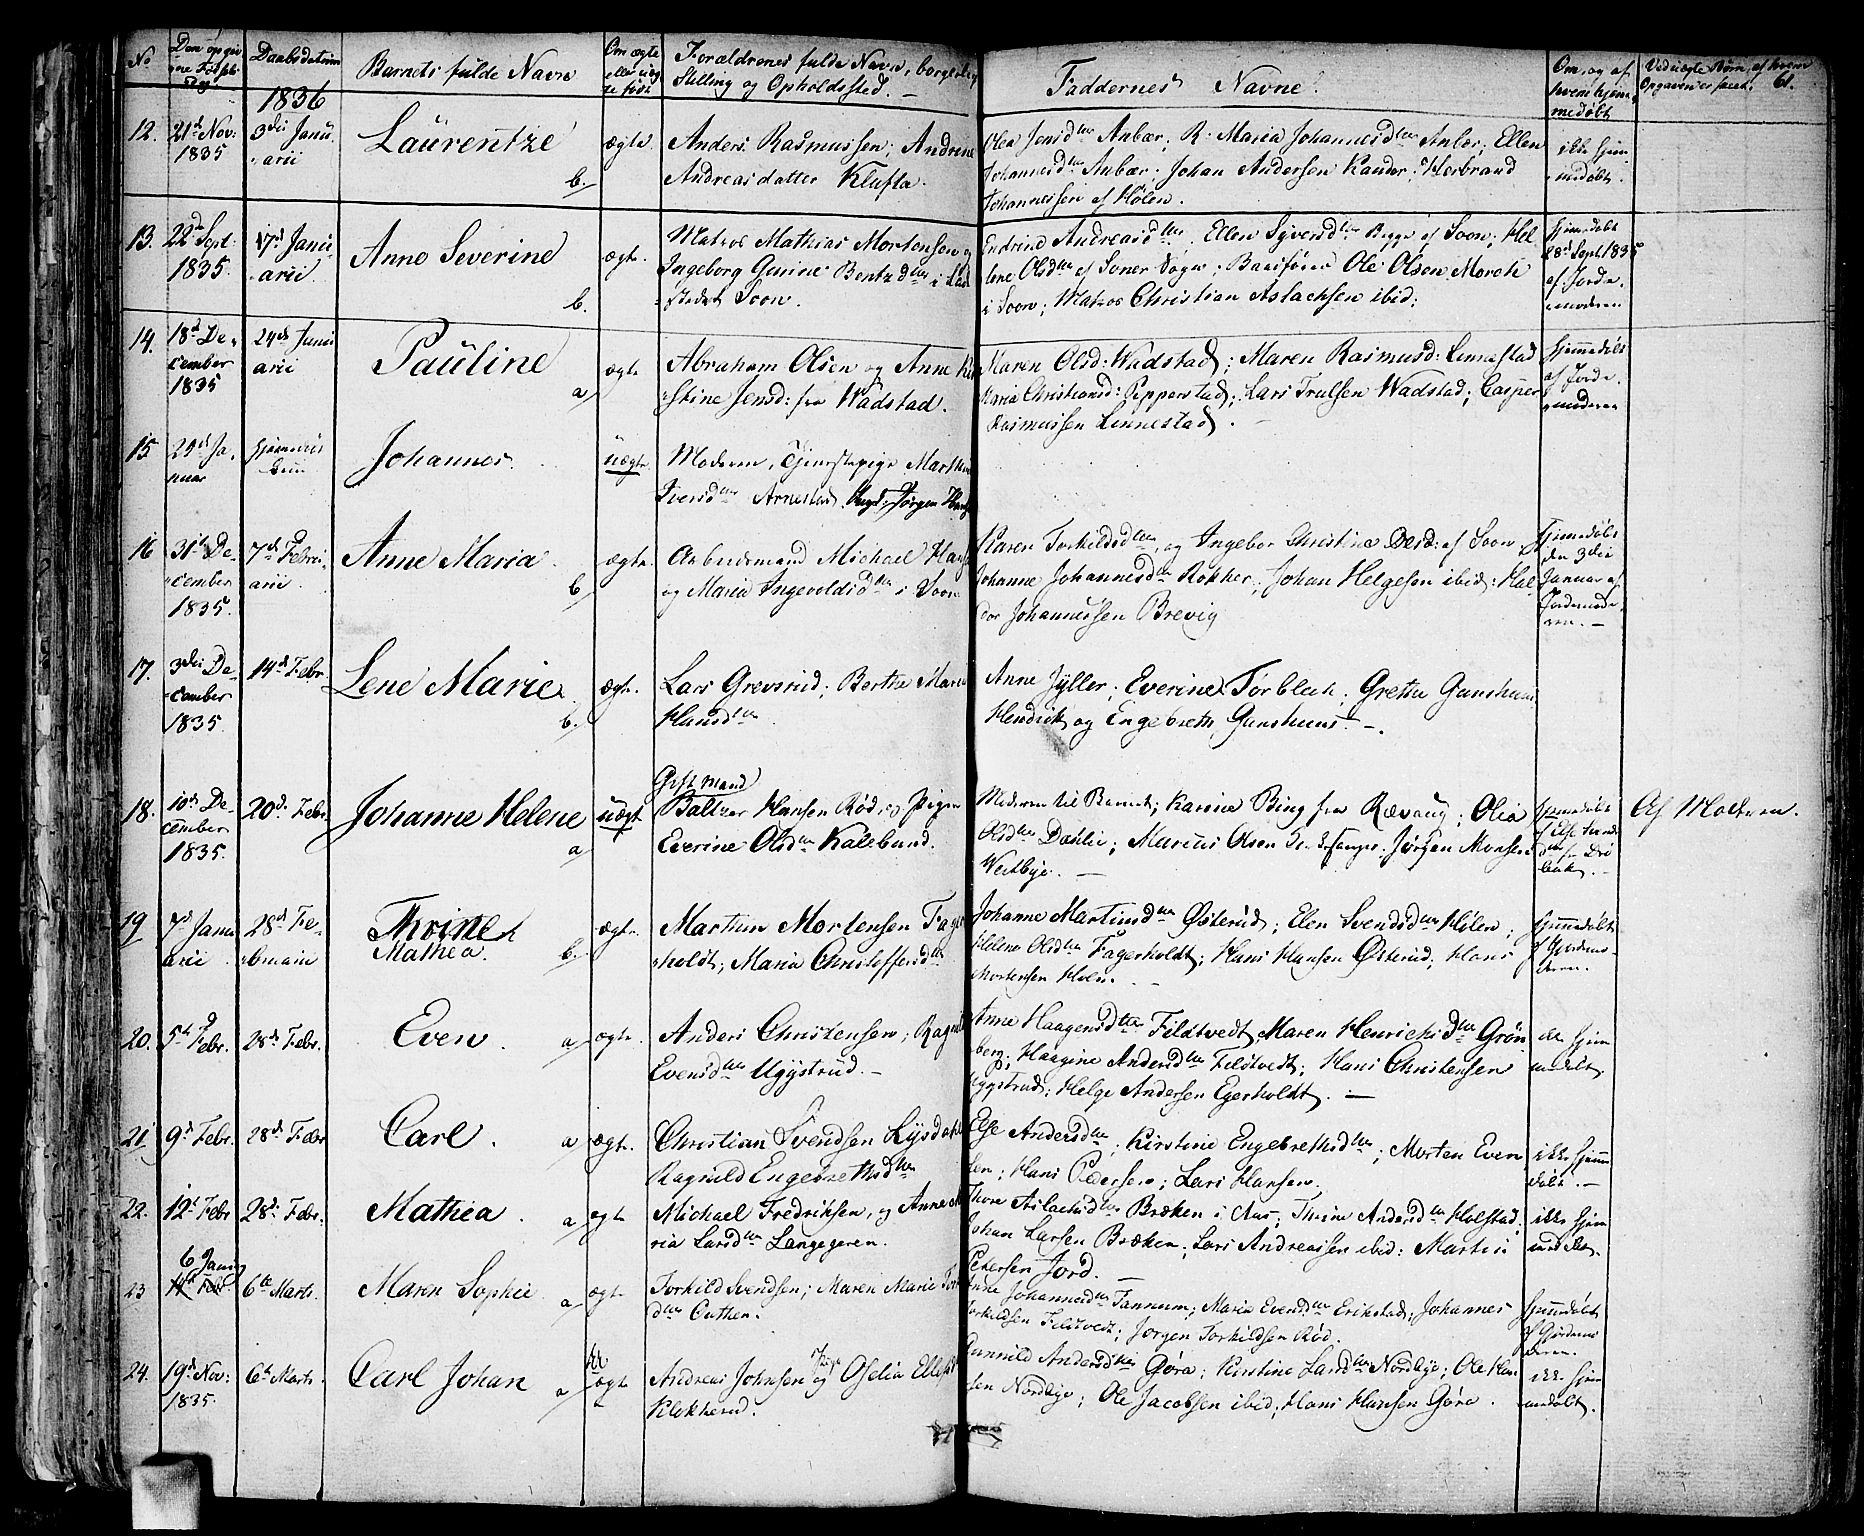 No
Den opgivne Fødselsdag
Daabsdatum
Barnets fulde Navn
Om ægte eller uægte født
Forældrenes fulde Navn, borgerlig Stilling og Opholdssted. —
Faddernes Navne.
Om, og af hvem hjemmedøbt
Ved uægte Børn, af hvem Opgaven er skeet.
61.
1836
12. 21de Nov: 1835
3die Januarii
Laurentze
b.
ægte.
Anders Rasmussen; Andrine
Andreasdatter Klufta.
Olea Jensdtr Anbær; R. Maria Johannesdtr Anbær; Ellen
Johannesdtr Anbær; Johan Andersen Kander; Herbrand
Johannessen af Hølen.
ikke hjemmedøbt.
13. 22de Sept: 1835.
17d Januarii.
Anne Severine
b.
ægte.
Matros Mathias Mortensen og
Ingeborg Gurine Bentzdtr i Ladstedet Soon.
Andreasdtr. Ellen Syversdtr Begge af Soon; Hellene Olsdtr af Soner Sogn; Ole Olsen Moreh
i Soon; Matros Christian Aslachsen ibid:
hjemmedøbt
28de Sept. 1835
af Jordemoderen
14. 18d December 1835
24de Januarii
Pauline
a
ægte
Abraham Olsen og Anne Kirstine Jensd: fra Wadstad.
Maren Olsd: Wadstad; Maren Rasmusd: Linnestad
Maria Christiansd: Pepperstad; Lars Trulsen Wadstad; Casper
Rasmussen Linnestad. —
hjemmedøbt
af Jordemoderen
15 29de Januar
hjemmedøbt
Johannes.
uægte.
Moderen, Tjenestepige Marthe
Iversdtr Arnestad. Jørgen
16 31te December 1835.
7de Februarii.
Anne Maria
b
ægte.
Arbeidsmand Michael
og Maria Ingevoldsdtr i Soon
Karen Torkildsdtr, og Ingebor Christine af Soon;
Johanne Johannesdtr Røkker; Johan Helgesen ibid: Haldor Johannessen Brevig
Hjemmedøbt
den 3die
Januar af
Jordemoderen. —
17. 3die December 1835
14de Febr.
Lene Marie
b.
ægte.
Lars Grevsrud; Berthe Marie
Hansdtr.
Anne Jyller; Everine Torblech; Grethe
Hendrik og Engebreth —.
18. 10de December 1835.
20de Febr.
Johanne Helene
a
uægt
Gift mand
Baltzer Hansen Rød, og Pigen
Everine Olsdtr Kalebund.
Moderen til Barnet; Karine Bing fra Rævaug; Olia
Olsdtr Dahlie; Marcus Olsen Jørgen Monsen
Westbye. —
Hjemmedøbt
af Else
Drøbak.
Af Moderen.
19 7d Januarii
28de Februarii
Thrine
Mathea.
b.
ægte.
Marthin Mortensen Fagerholdt; Maria Christoffersdtr
Johanne Martinsdtr Østerud; Elen Svendsdtr Hølen;
Helene Olsdtr Fagerholdt; Hans Hansen Østerud; Hans
Mortensen Holen. —
hjemmedøbt
af Jordemoderen.
20. 5te Febr.
28de Febr.
Even
a
ægte.
Anders Christensen; Ragnild
Evensdtr Uggstrud. —
Anne Haagensdtr Fildtvedt, Maren Henrichsdtr Grønberg; Haagine Andersdtr Fildtvedt; Hans Christensen
Uggstrud; Helge Andersen Egerholdt. —
hjemmedøbt.
21 9de Febr.
28de Febr
Carl.
a
ægte.
Christian Svendsen Lysdahl
Ragnild Engebrethsdtr
Else Andersdtr; Kirstine Engebrethsdtr; Morten Evensen; Hans Pedersen; Lars Hansen.
ikke hjemmedøbt. —
22. 12te Febr
28de Febr.
Mathea.
a
ægte
Michael Fredriksen, og Anne Maria Larsdtr Langegeren.
Thore Aslachsdtr Bræken i Aas; Thrine Andersdtr Holstad;
Johan Larsen Bræken; Lars Andreassen ibid: Martin
Petersen Jord. —
ikke hjemmedøbt.
23 6 Januar
14de Febr.
6te Marts.
Maren Sophie
a
ægte.
Torkild Svendsen; Maren Marie
Anne Johannesdtr Tannum; Maria Evensdtr Erikstad; Johannes
Torkildsen Fildtvedt; Jørgen Torkildsen Rød.
hjemmedøbt
af Jordemoderen.
24. 19de Nov: 1835.
6te Marts.
Carl Johan
a
uægte
Andreas Johnsen og Pige Oselia
Klokkerud.
Gunnild Andersdtr Gøra; Kirstine Larsdtr Nordbye; Ole Hansen Nordbye; Ole Jacobsen ibid; Hans Hansen Gøra.
ikke hjemmedøbt.